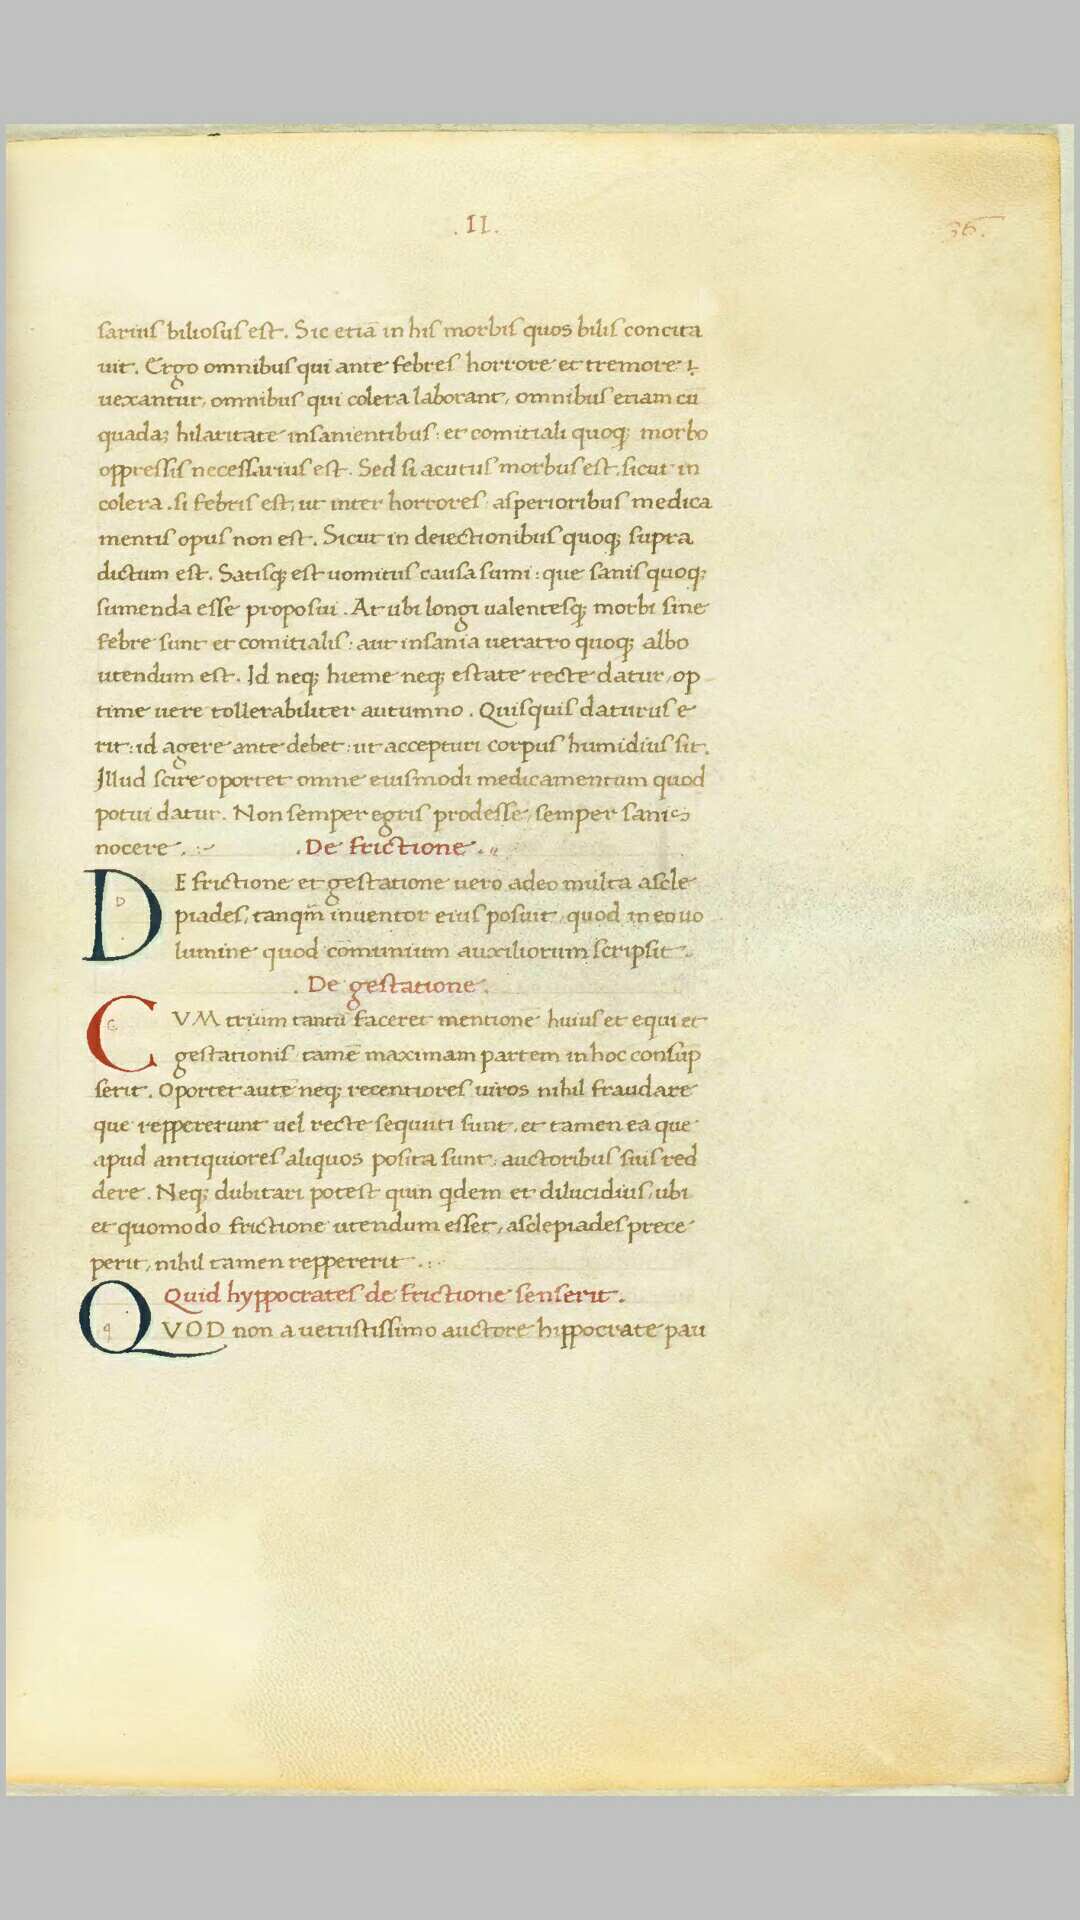 .II.
36.
sarius biliosus est. Sic etiā in his morbis quos bilis concita
uit. Ergo omnibus qui ante febres horrore et tremore
uexantur, omnibus qui colera laborant, omnibus etiam cū
quadaꝫ hilaritate insanientibus: et comitiali quoqꝫ morbo
oppressis necessarius est. Sed si acutus morbus est, sicut in
colera. si febris est, ut inter horrores: asperioribus medica
mentis opus non est. Sicut in deiectionibus quoqꝫ supra
dictum est. Satisqꝫ est uomitus causa sumi: que sanis quoqꝫ
sumenda esse proposui. At ubi longi ualentesqꝫ morbi sine
febre sunt et comitialis: aut insania ueratro quoqꝫ albo
utendum est. Id neqꝫ hieme neqꝫ estate recte datur, op
time uere tollerabiliter autumno. Quisquis daturus e
rit: id agere ante debet: ut accepturi corpus humidius sit.
Illud scire oportet omne eiusmodi medicamentum quod
potui datur. Non semper egris prodesse, semper sanis
nocere.
.De frictione.
DE frictione et gestatione uero adeo multa ascle
piades, tanqm̄ inuentor eius posuit, quod in eo uo
lumine quod comunium auxiliorum scripsit.
. De gestatione.
CVM trium tantū faceret mentione huius et equi et
gestationis tamē maximam partem in hoc consūp
serit. Oportet autē neqꝫ recentiores uiros nihil fraudare
que reppererunt uel recte sequuti sunt, et tamen ea que
apud antiquiores aliquos posita sunt: auctoribus suis red
dere. Neqꝫ dubitari potest quin qdem et dilucidius, ubi
et quomodo frictione utendum esset, asclepiades prece
perit, nihil tamen reppererit.
Quid hyppocrates de frictione senserit.
QVOD non a uetustissimo auctore hippocrate pau